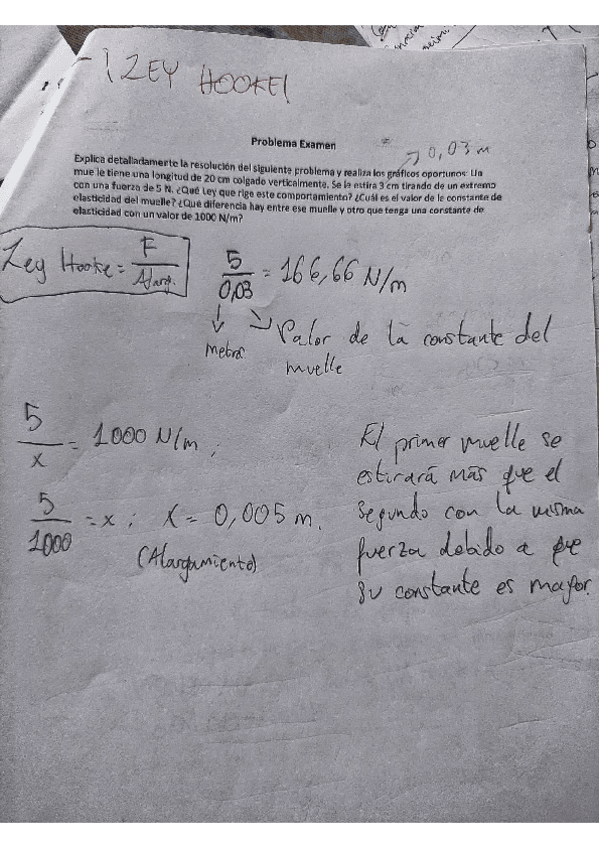 1 LEY HOOKE
Problema Examen
→ 0,03 m
Explica detalladamente la resolución del siguiente problema y realiza los gráficos oportunos: Un
mue le tiene una longitud de 20 cm colgado verticalmente. Se la estira 3 cm tirando de un extremo
con una fuerza de 5 N. ¿Qué Ley que rige este comportamiento? ¿Cuál es el valor de le constante de
elasticidad del muelle? ¿Qué diferencia hay entre ese muelle y otro que tenga una constante de
elasticidad con un valor de 1000 N/m?
Ley Hooke = F / Alarg.
5 / 0,03 = 166,66 N/m
Metros
Valor de la constante del
muelle
5 / x = 1000 N/m ;
5 / 1000 = x ; X = 0,005 m.
(Alargamiento)
El primer muelle se
estirará más que el
segundo con la misma
fuerza debido a que
su constante es mayor.